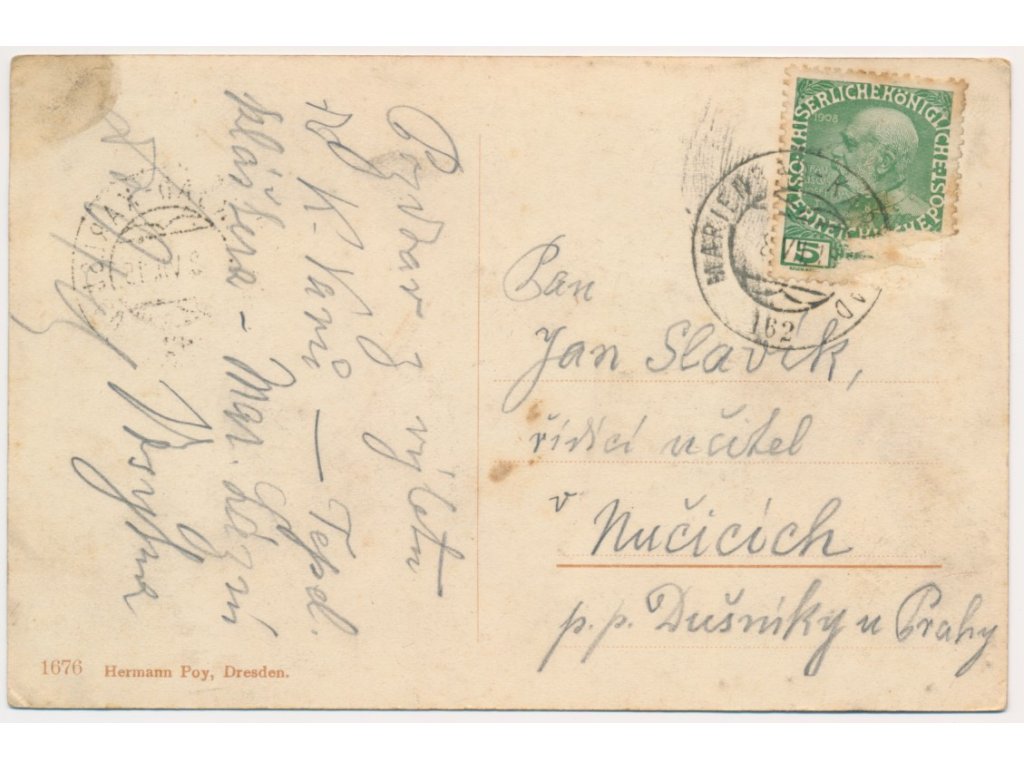 Pozdrav z výletu
do K. Varů — Tepl.
kláštera - Mar. Lázní
KAISERLICHE KÖNIGLICHE
1908
5
MARIENBAD
162
Pan
Jan Slavík,
řídící učitel
v
Nučicích
p. p. Dušníky u Prahy
1676 Hermann Poy, Dresden.